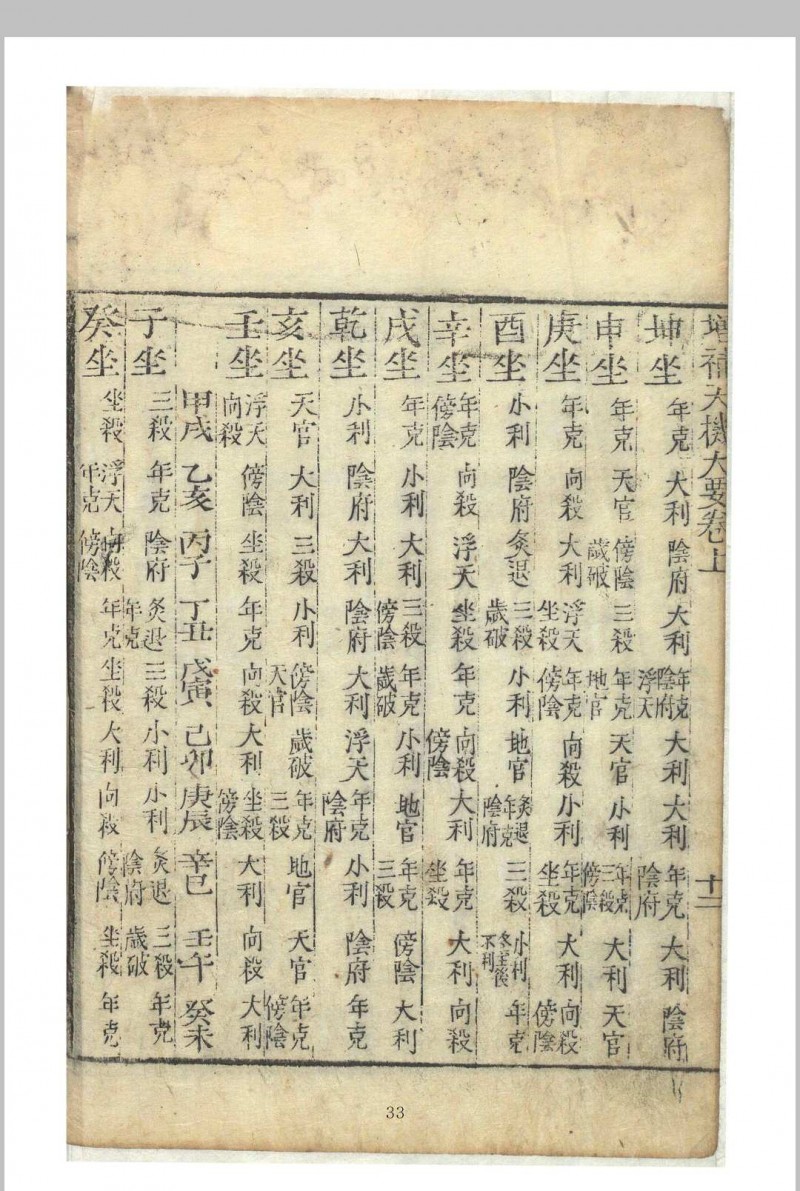 增補天機大要卷上 十二
坤坐 年克 大利 陰府 大利 年克陰府浮天 大利 大利 年克陰府 大利 陰府
申坐 年克 天官 傍陰歲破 三殺 年克地官 天官 小利 年克三殺傍陰 大利 天官
庚坐 年克 向殺 大利 浮天坐殺 年克傍陰 向殺 小利 年克坐殺 大利 向殺傍陰
酉坐 小利 陰府 灸退 三殺歲破 小利 地官 灸退年克陰府 三殺 小利冬至後不利 年克
辛坐 年克傍陰 向殺 浮天 坐殺 年克 向殺傍陰 大利 年克坐殺 大利 向殺
戌坐 年克 小利 大利 三殺傍陰 年克歲破 小利 地官 年克三殺 傍陰 大利
乾坐 小利 陰府 大利 陰府 大利 浮天 年克陰府 小利 陰府 年克
亥坐 天官 大利 三殺 小利 傍陰天官 歲破 年克三殺 地官 天官 年克傍陰
壬坐 浮天向殺 傍陰 坐殺 年克 向殺 大利 坐殺傍陰 大利 向殺 大利
甲戌 乙亥 丙子 丁丑 戊寅 己卯 庚辰 辛巳 壬午 癸未
子坐 三殺 年克 陰府 灸退年克 三殺 小利 小利 灸退陰府 三殺歲破 年克
癸坐 坐殺 浮天年克 向殺傍陰 年克 坐殺 大利 向殺 傍陰 坐殺 年克
33